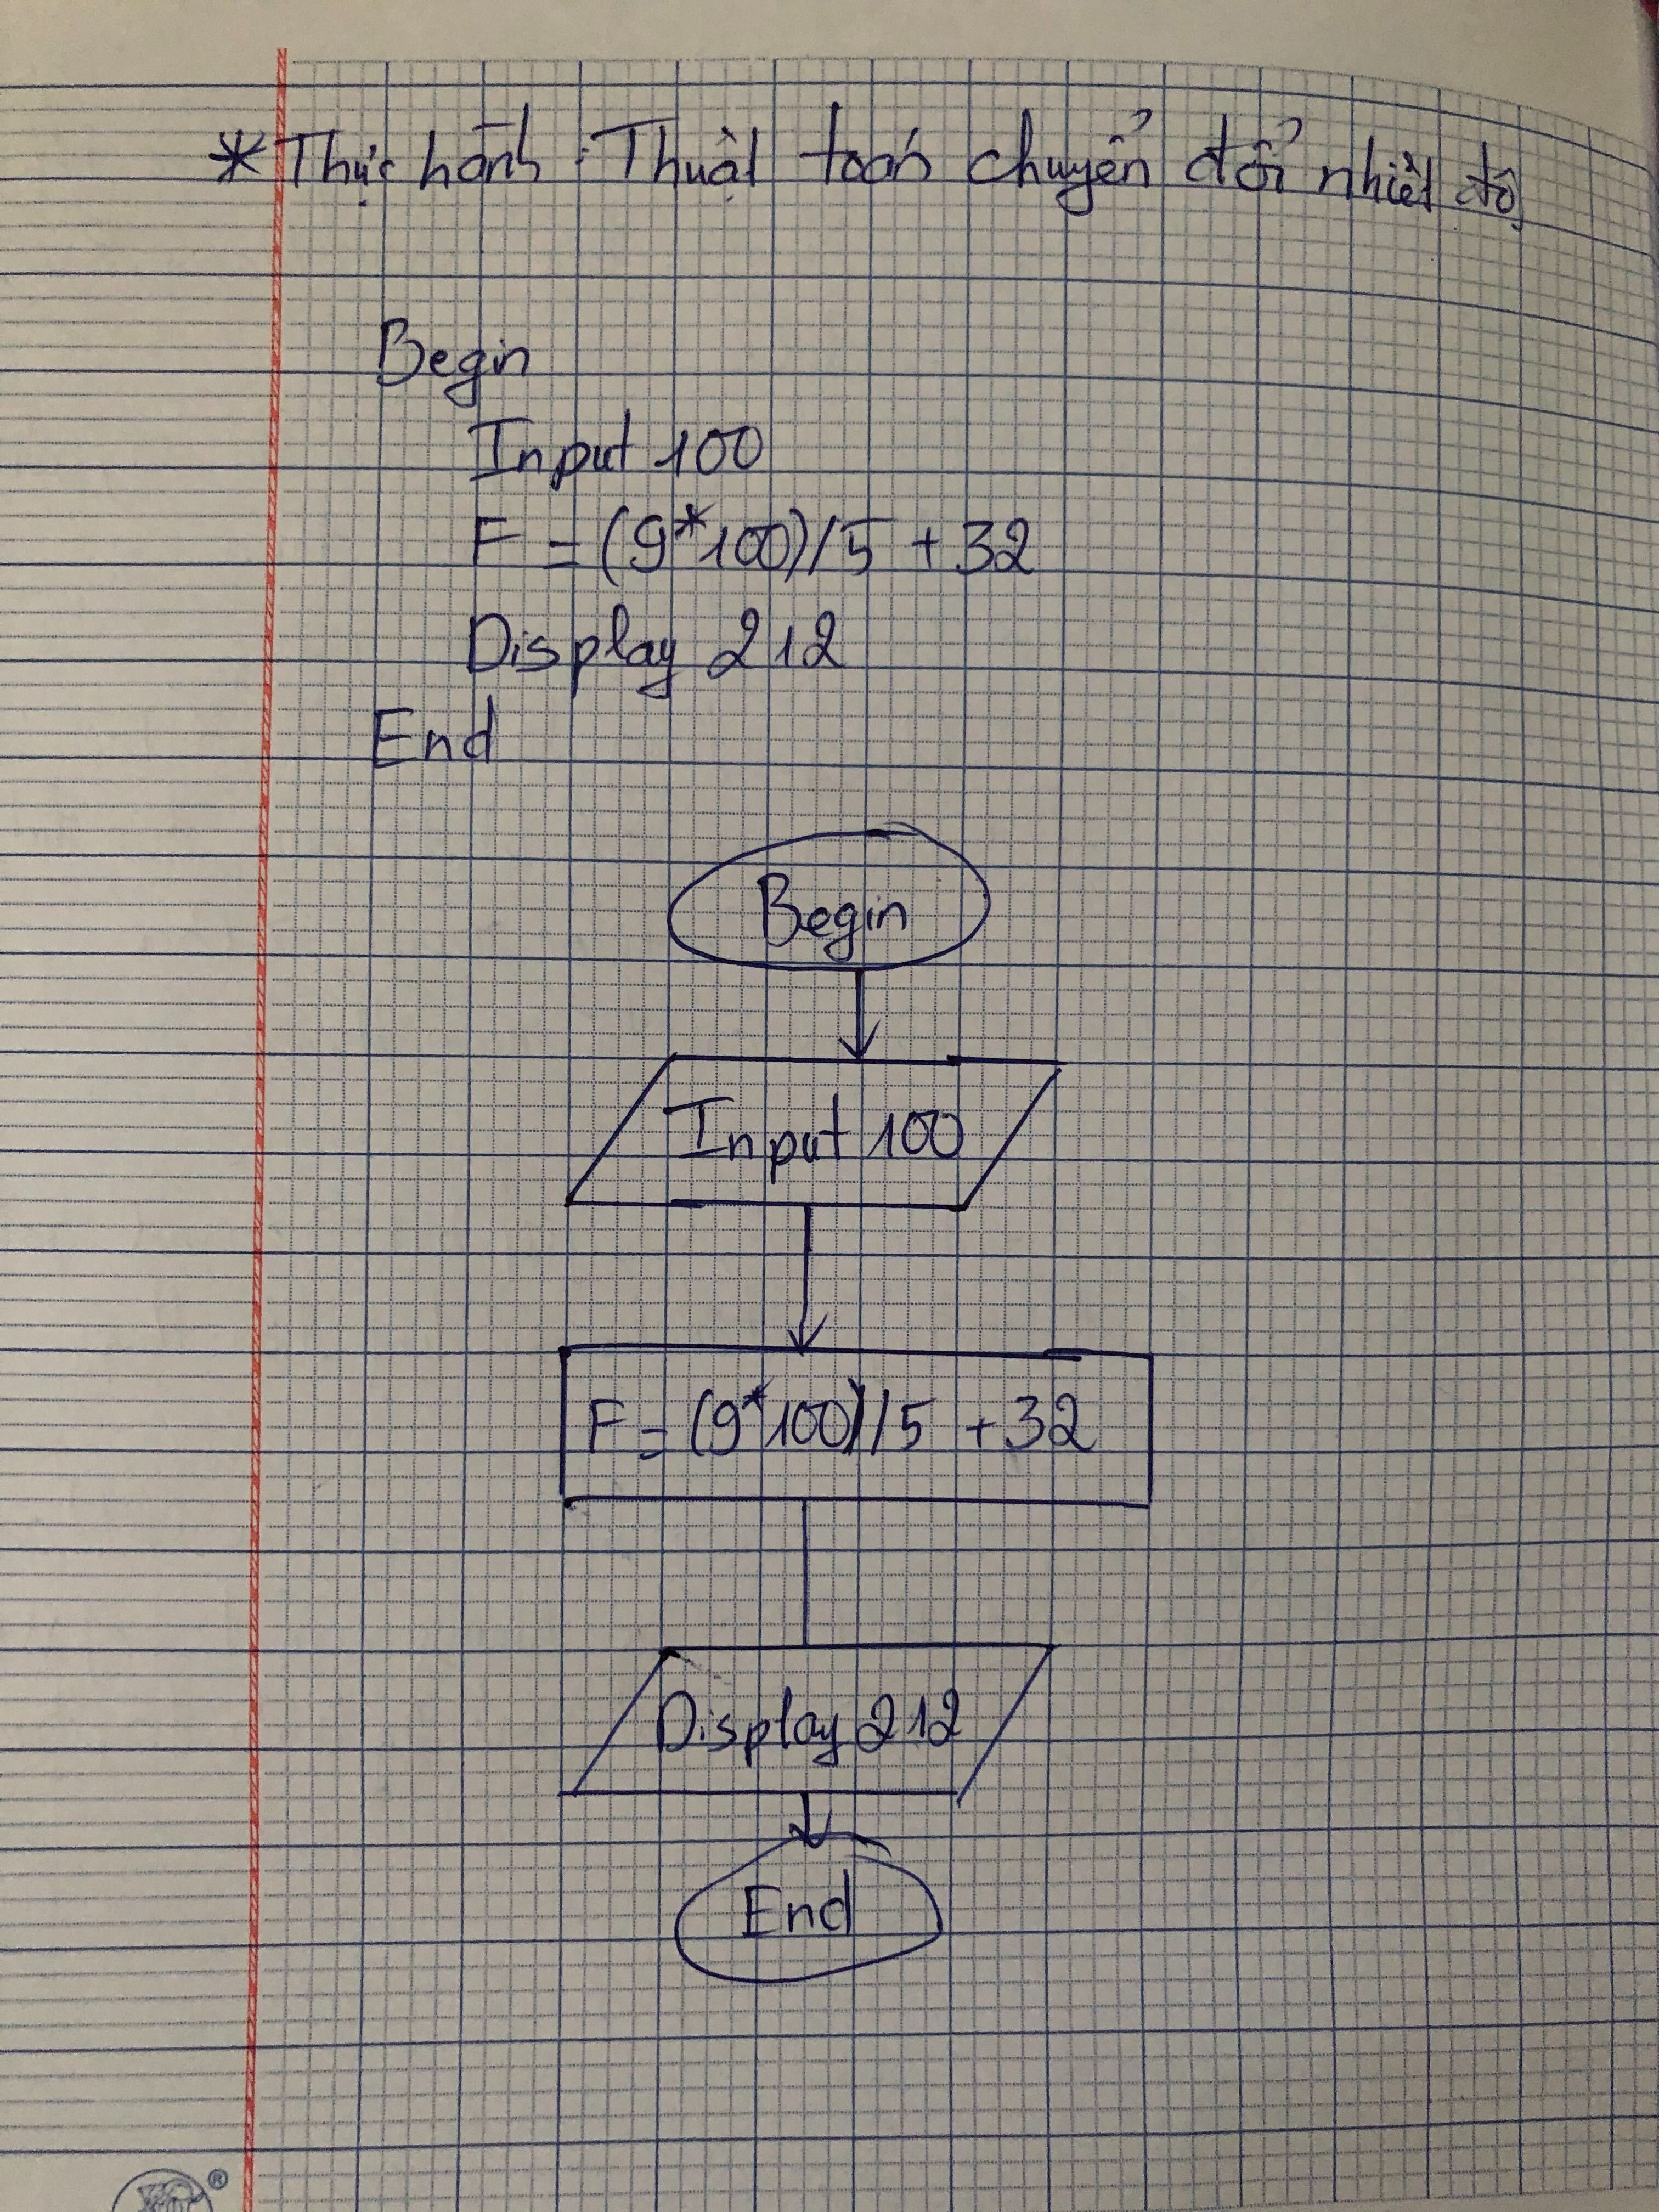 * Thực hành : Thuật toán chuyển đổi nhiệt độ
Begin
Input 100
F = (9*100)/5 + 32
Display 212
End
Begin
Input 100
F = (9*100)/5 + 32
Display 212
End
®